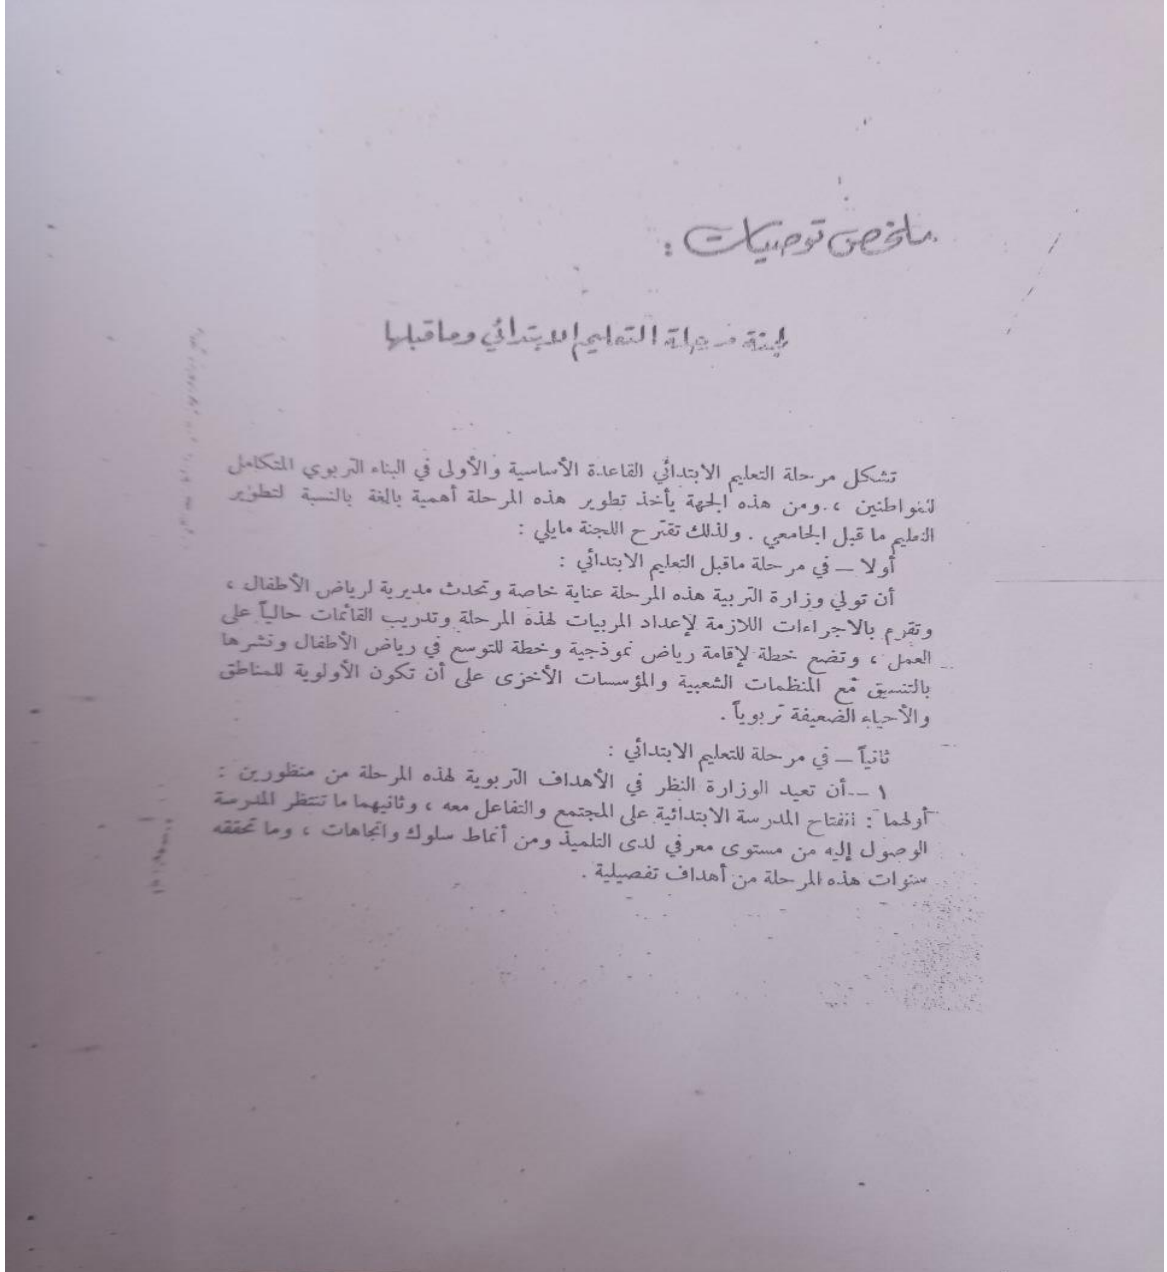 ملخص توصيات :
لجنة مرحلة التعليم الابتدائي وماقبلها
تشكل مرحلة التعليم الابتدائي القاعدة الأساسية والأولى في البناء التربوي المتكامل
للمواطنين ، ومن هذه الجهة يأخذ تطوير هذه المرحلة أهمية بالغة بالنسبة لتطوير
التعليم ما قبل الجامعي . ولذلك تقترح اللجنة مايلي :
أولا – في مرحلة ماقبل التعليم الابتدائي :
أن تولي وزارة التربية هذه المرحلة عناية خاصة وتحدث مديرية لرياض الأطفال ،
وتقوم بالاجراءات اللازمة لإعداد المربيات لهذه المرحلة وتدريب القائمات حالياً على
العمل ، وتضع خطة لإقامة رياض نموذجية وخطة للتوسع في رياض الأطفال ونشرها
بالتنسيق مع المنظمات الشعبية والمؤسسات الأخرى على أن تكون الأولوية للمناطق
والأحياء الضعيفة تربوياً .
ثانياً – في مرحلة للتعليم الابتدائي :
١ – أن تعيد الوزارة النظر في الأهداف التربوية لهذه المرحلة من منظورين :
أولهما : انفتاح المدرسة الابتدائية على المجتمع والتفاعل معه ، وثانيهما ما تنتظر المدرسة
الوصول إليه من مستوى معرفي لدى التلميذ ومن أنماط سلوك واتجاهات ، وما تحققه
سنوات هذه المرحلة من أهداف تفصيلية .